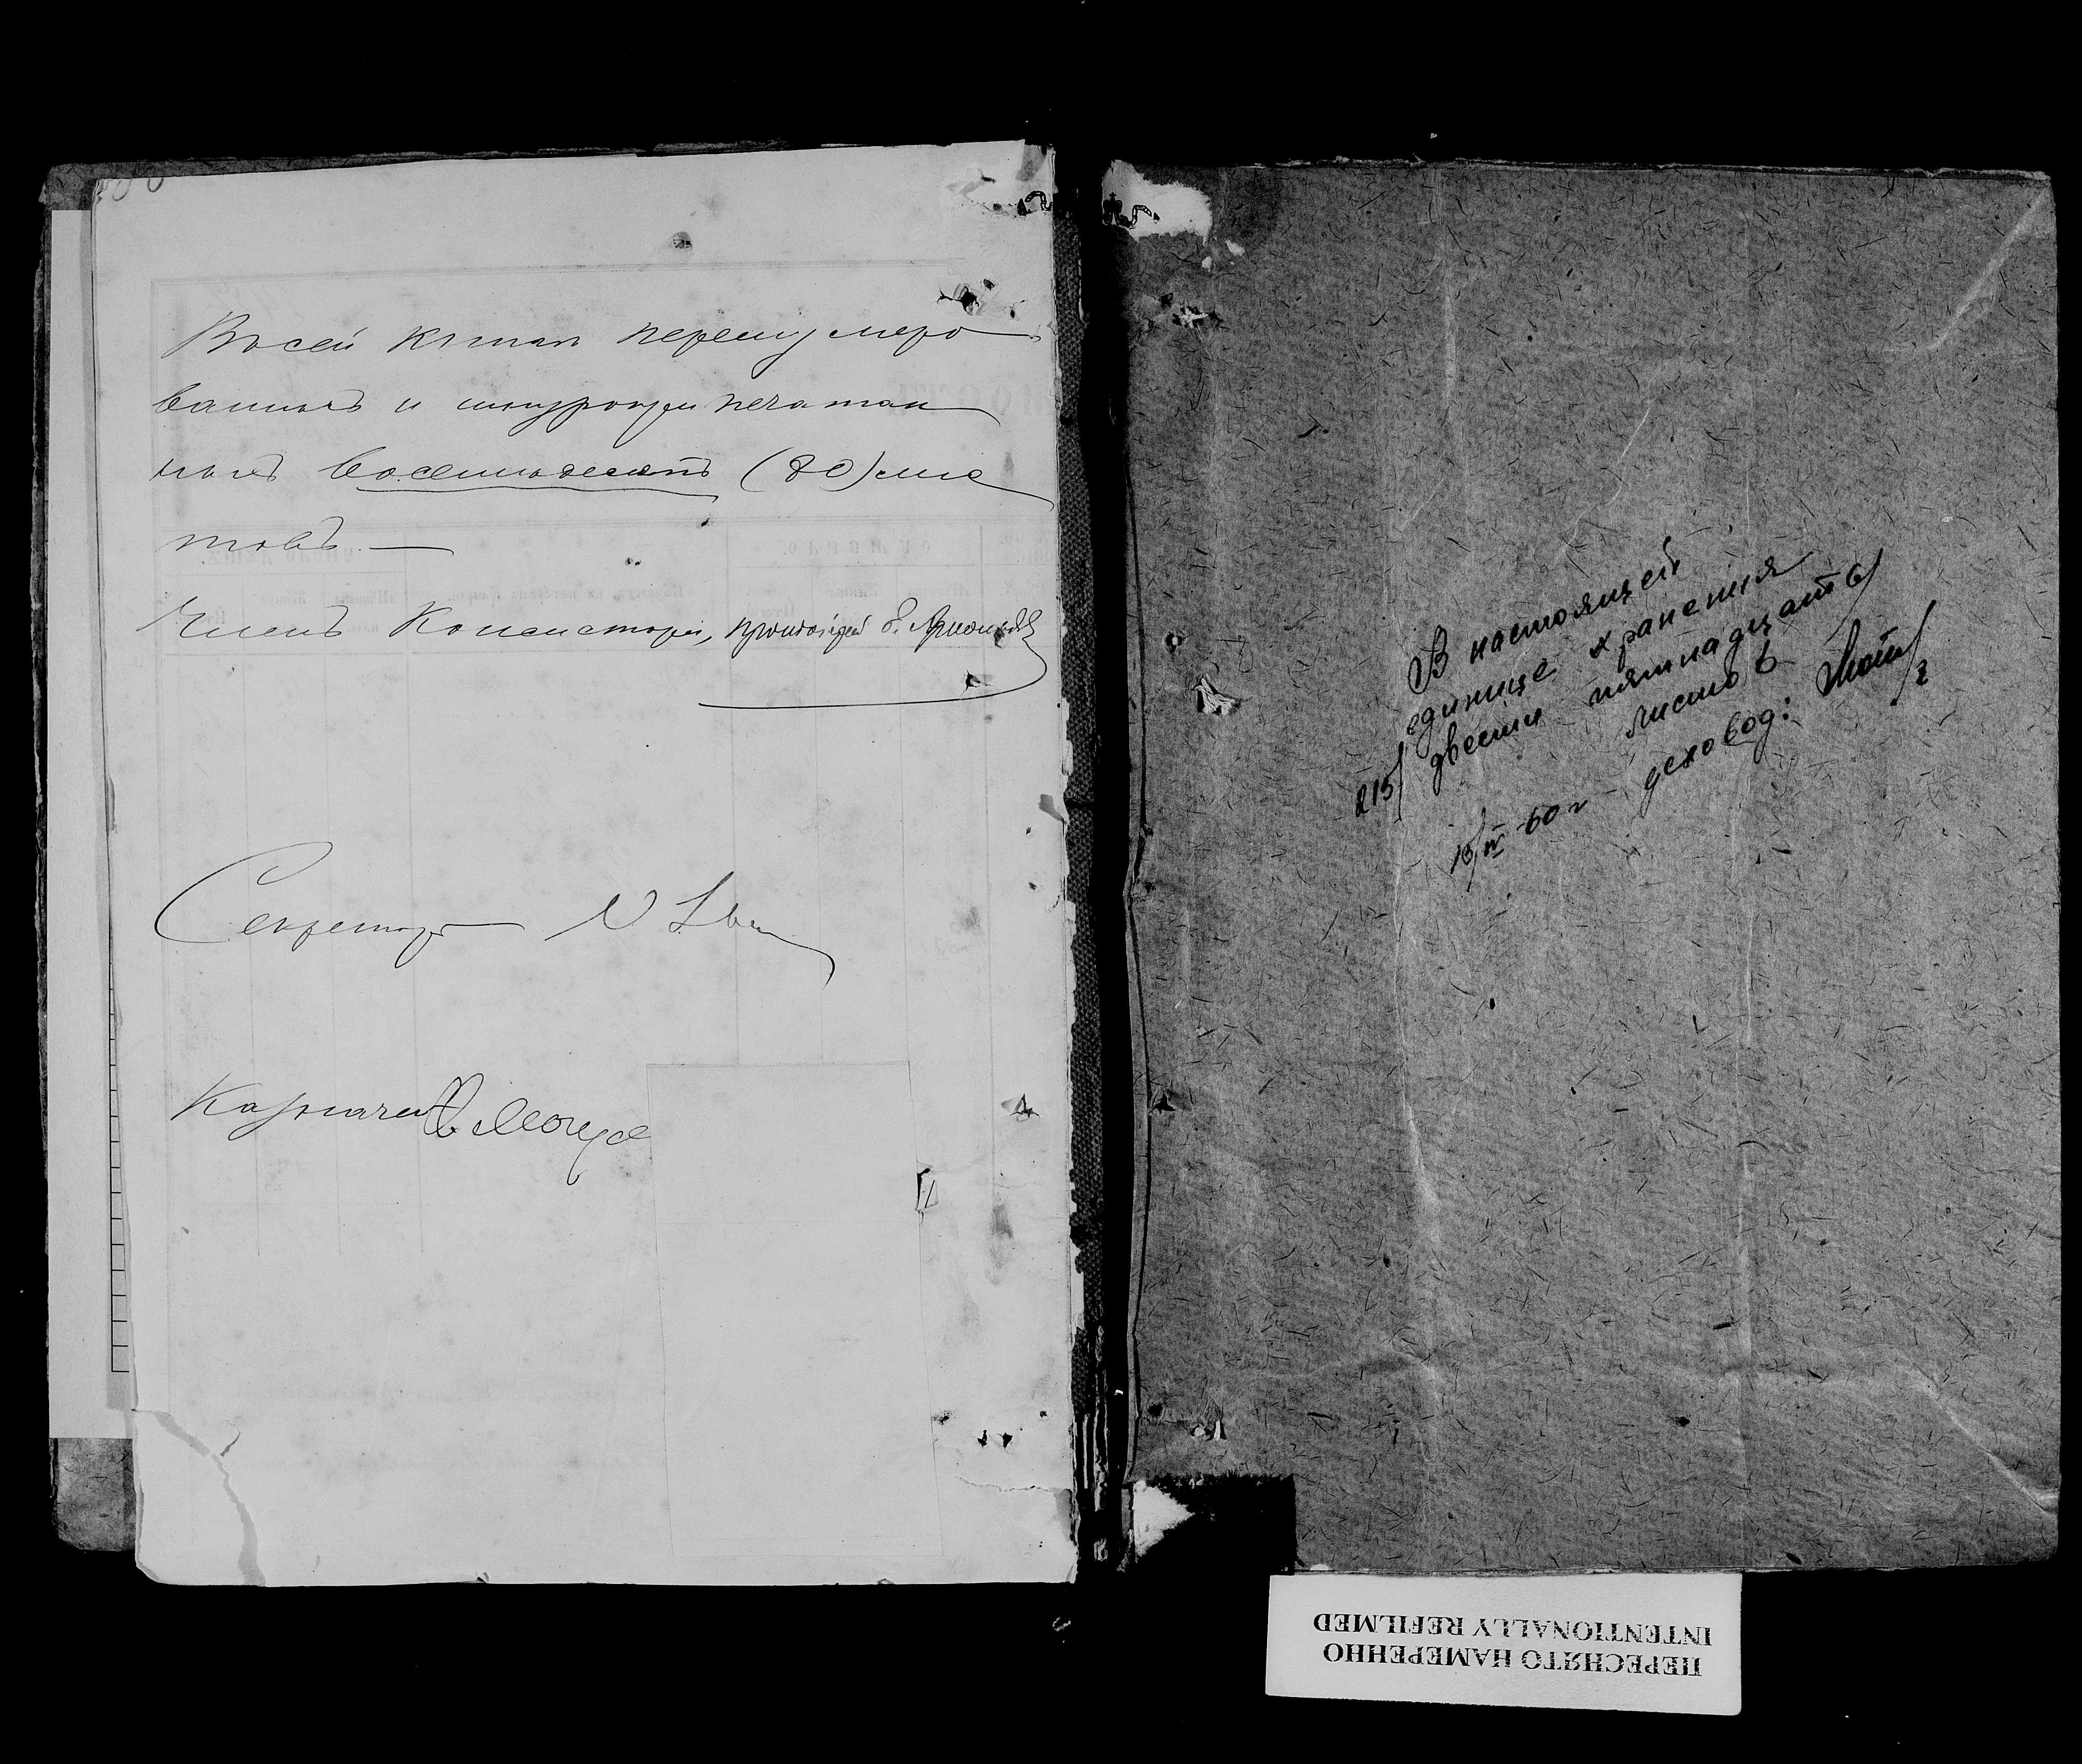 Въ сей книгѣ перенумеро
ванныхъ и шнуроприпечатан
ныхъ восемьдесятъ (80) лис
товъ.—
Членъ Консисторіи, протоіерей
Секретарь
Казначей
В настоящей
единице хранения
215/ двести пятнадцать/
листов
деловод:
15/IV-60 г
ПЕРЕСНЯТО НАМЕРЕННО
INTENTIONALLY REFILMED